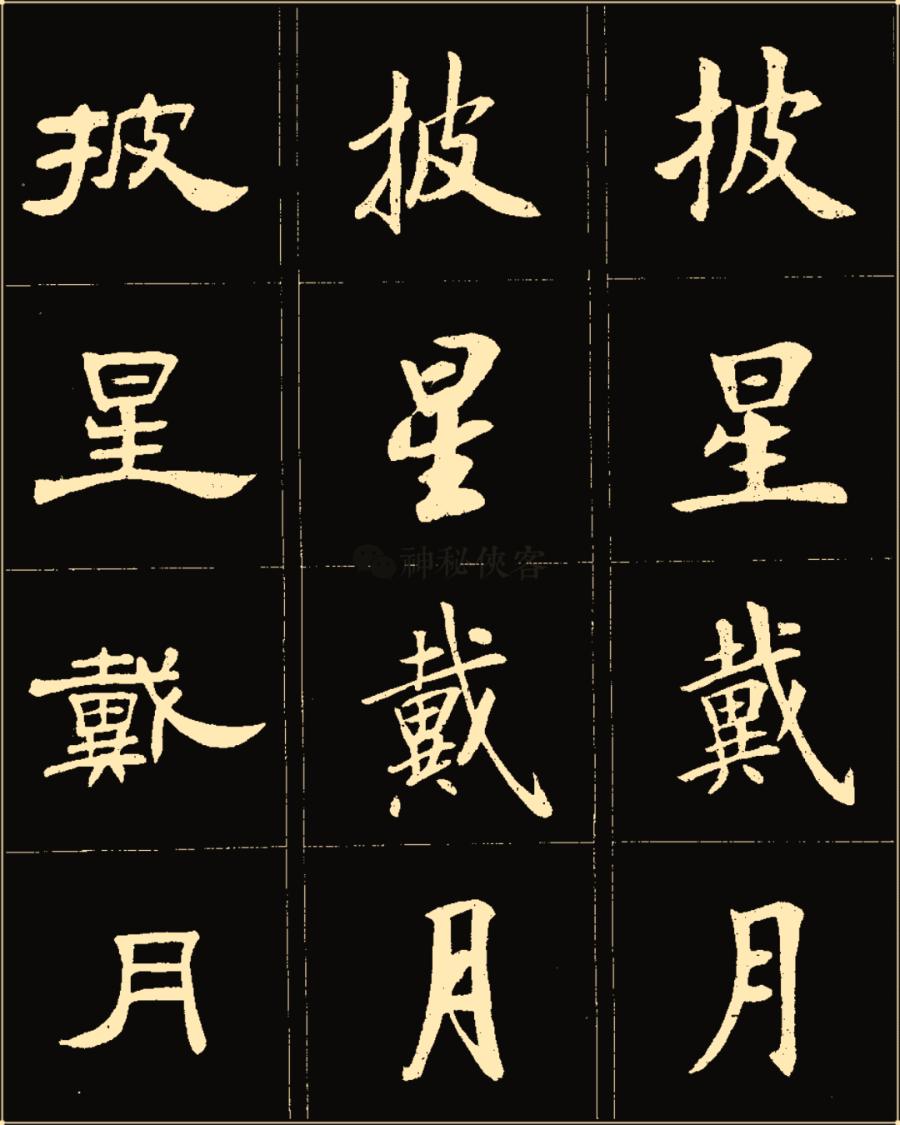 披星戴月
披星戴月
披星戴月
神秘侠客